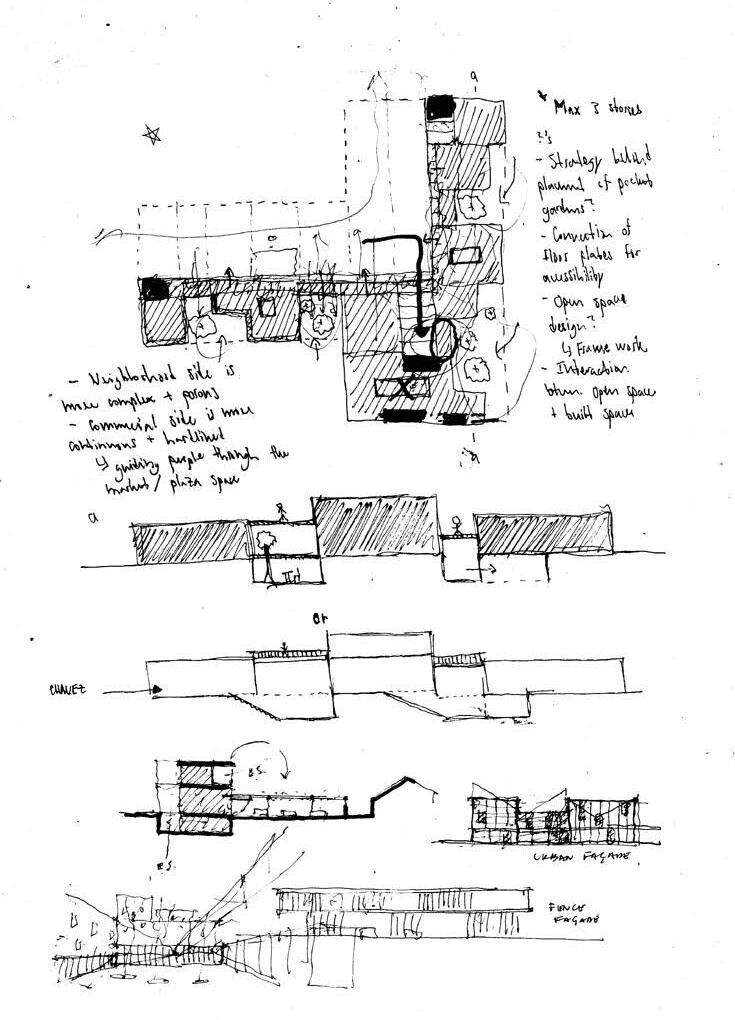 a
* Max 3 stories
?'s
- Strategy behind
placement of pocket
gardens?
- Connection of
floor plates for
accessibility
- Open space
design?
↳ Frame work
- Interaction
btwn. open space
+ built space
a
- Neighborhood side is
more complex + porous
- Commercial side is more
continuous + hardlined
↳ guiding people through the
market/plaza space
a
or
CHAVEZ
B.S.
B.S.
URBAN FAÇADE
FENCE
FAÇADE